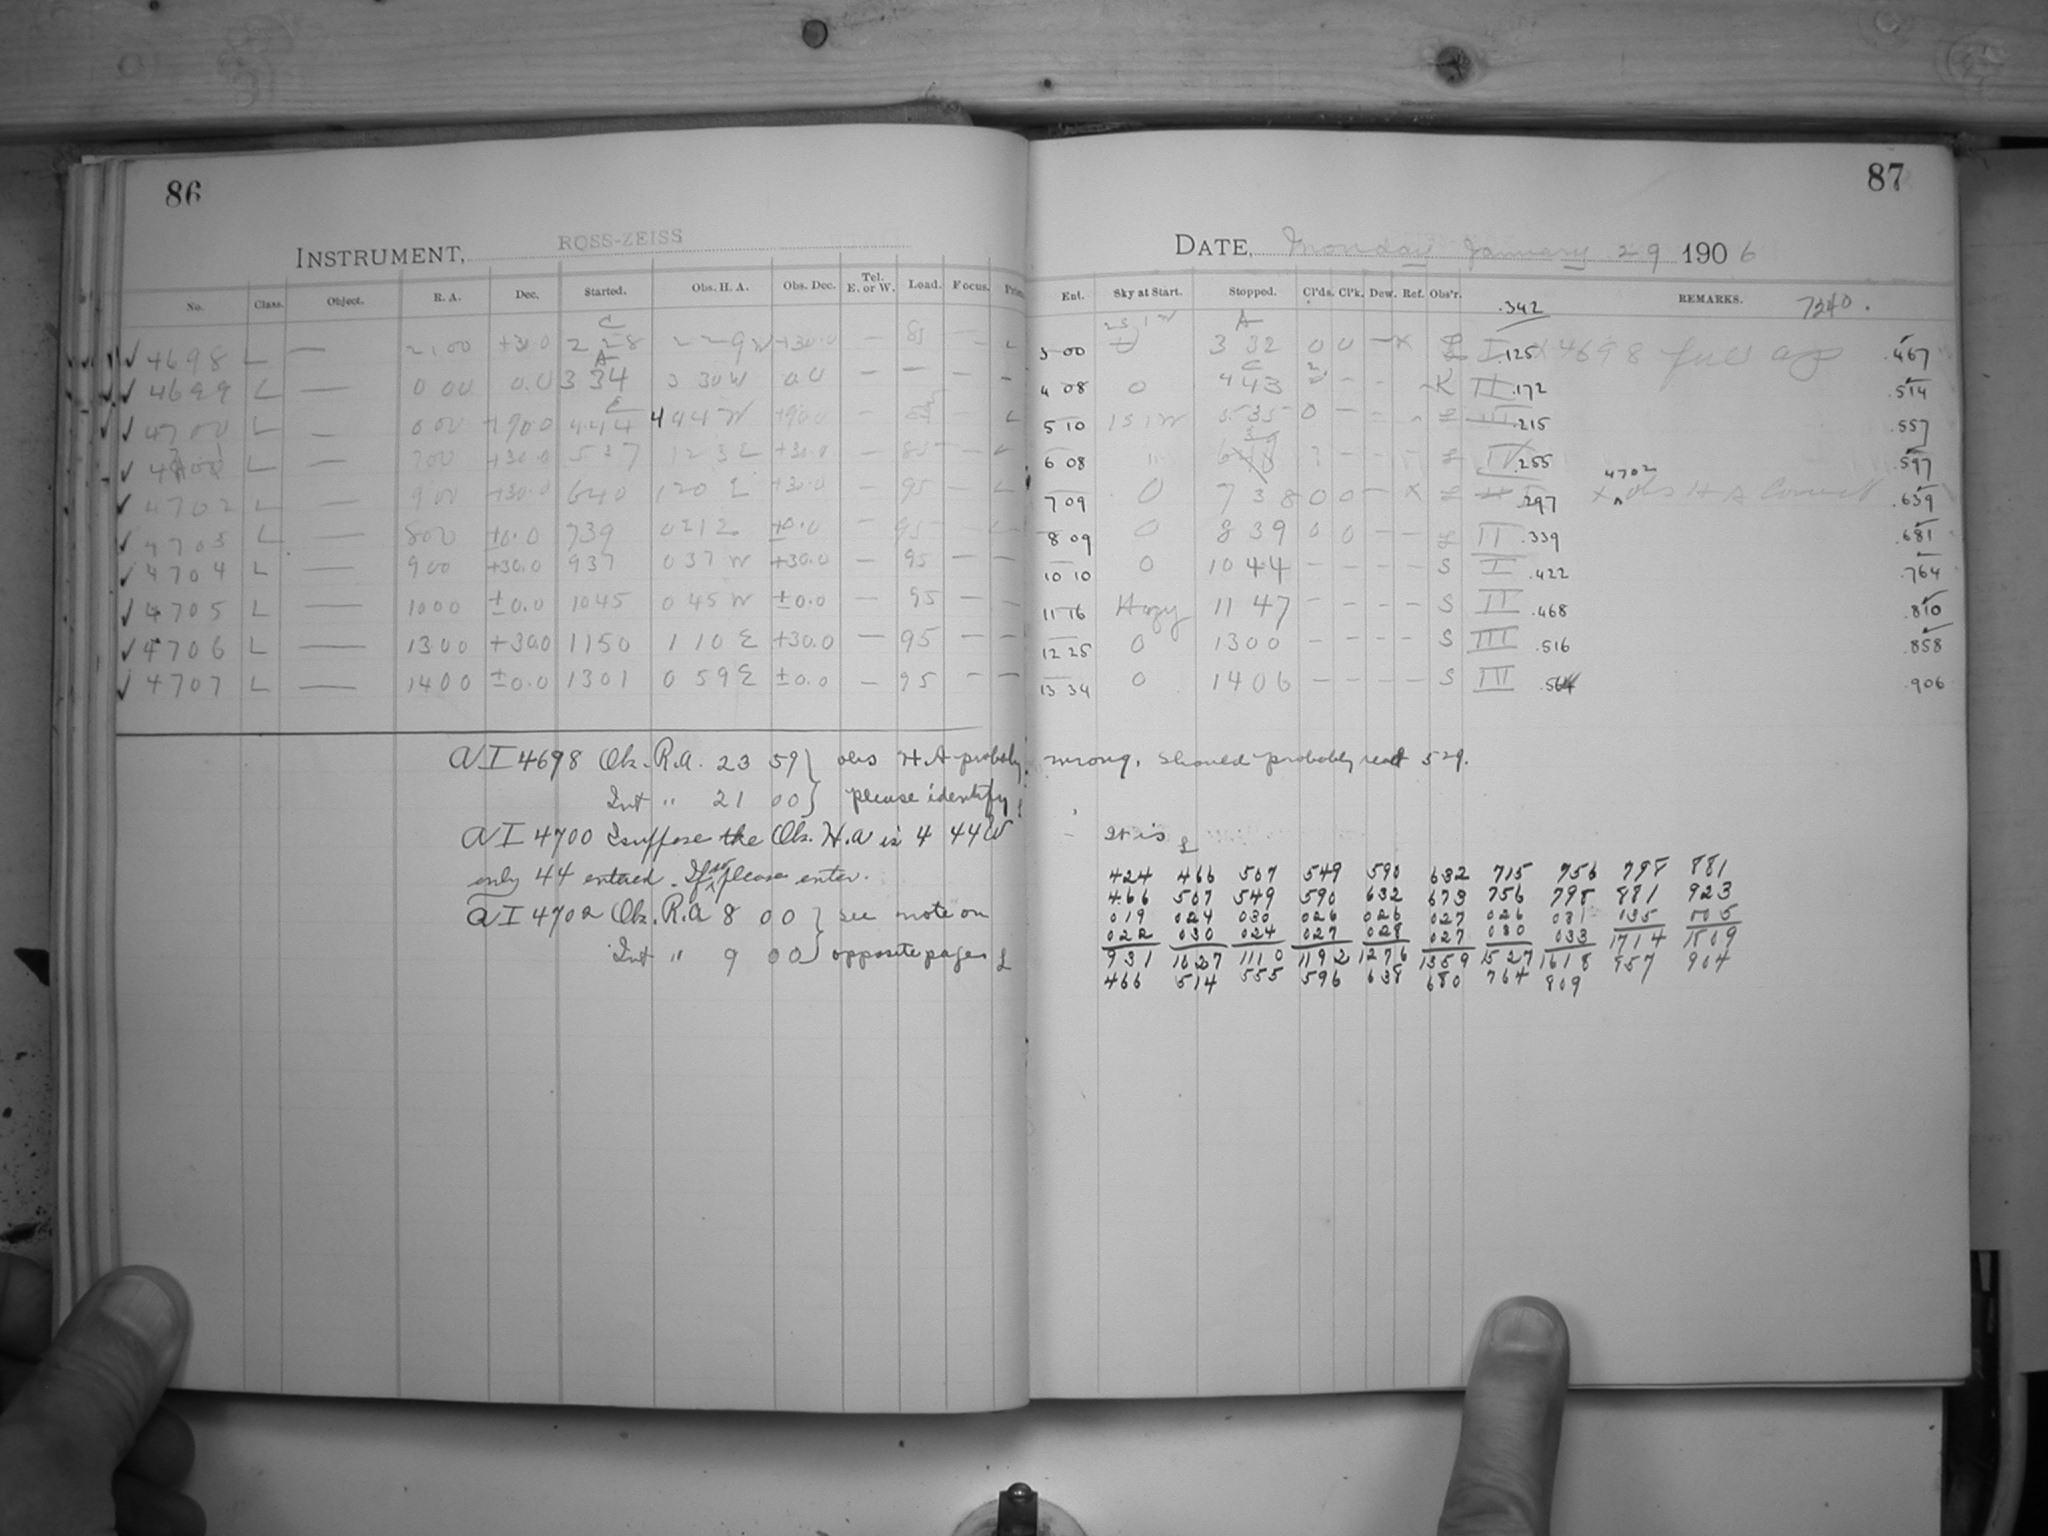 86
INSTRUMENT, ROSS-ZEISS
No. Class. Object. R. A. Dec. Started. Obs. H. A. Obs. Dec. Tel. E. or W. Load. Focus.
C
✓ 4698 L — 21 00 +30.0 2 28 2 29 W +30.0 — 85 — L
A
✓ 4699 L — 0 00 0.0 3 34 3 30 W 0.0 — — — —
C
✓ 4700 L — 0 00 +90.0 4 44 4 44 W +90.0 — — L
✓ L — 7 00 +30.0 5 37 1 23 E +30.0 — 85 — L
✓ 4702 L — 9 00 +30.0 6 40 1 20 E +30.0 — 95 — L
✓ 4703 L — 8 00 ±0.0 7 39 0 21 E ±0.0 — 95 — L
✓ 4704 L — 9 00 +30.0 9 37 0 37 W +30.0 — 95 — —
✓ 4705 L — 10 00 ±0.0 10 45 0 45 W ±0.0 — 95 — —
✓ 4706 L — 13 00 +30.0 11 50 1 10 E +30.0 — 95 — —
✓ 4707 L — 14 00 ±0.0 13 01 0 59 E ±0.0 — 95 — —
AI 4698 Obs. R.A. 23 59 } obs H.A probably
Int " 21 00 } please identify
AI 4700 I suppose the Obs. H.A is 4 44 W
only 44 entered. If so please enter.
AI 4702 Obs. R.A 8 00 } see note on
Int " 9 00 } opposite page L
87
DATE, Monday January 29 1906
Ent. Sky at Start. Stopped. Cl'ds. Cl'k. Dew. Ref. Obs'r. REMARKS.
.342 7340.
A
3 00 3 32 0 0 — X L I .125 X 4698 .467
C
4 08 0 4 43 2 — — K II .172 .514
5 10 1 S 1 W 5 35 0 — — L III .215 .557
6 08 " L IV .255 .597
4702
7 09 0 7 38 0 0 — X L .297 X Obs H A Correct .639
8 09 0 8 39 0 0 — — L II .339 .681
10 10 0 10 44 — — — — S I .422 .764
11 16 Hazy 11 47 — — — — S II .468 .810
12 25 0 13 00 — — — — S III .516 .858
13 34 0 14 06 — — — — S III .564 .906
wrong. Should probably read 529.
It is L
424 466 507 549 590 632 715 756 798 881
466 507 549 590 632 673 756 798 881 923
019 024 030 026 026 027 026 031 135
022 030 024 027 028 027 030 033 1714 1809
931 1027 1110 1192 1276 1359 1527 1618 857 904
466 514 555 596 638 680 764 809